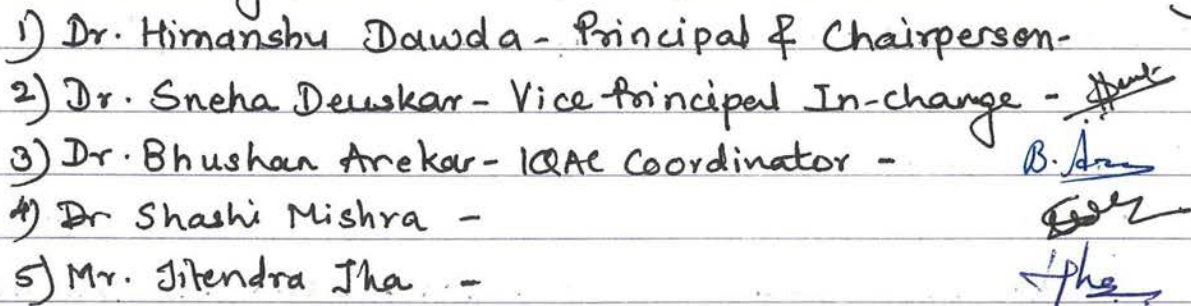 1) Dr. Himanshu Dawda - Principal & Chairperson-
2) Dr. Sneha Deuskar - Vice Principal In-change -
3) Dr. Bhushan Arekar - IQAC Coordinator - B. 
4) Dr Shashi Mishra -
5) Mr. Jitendra Jha -